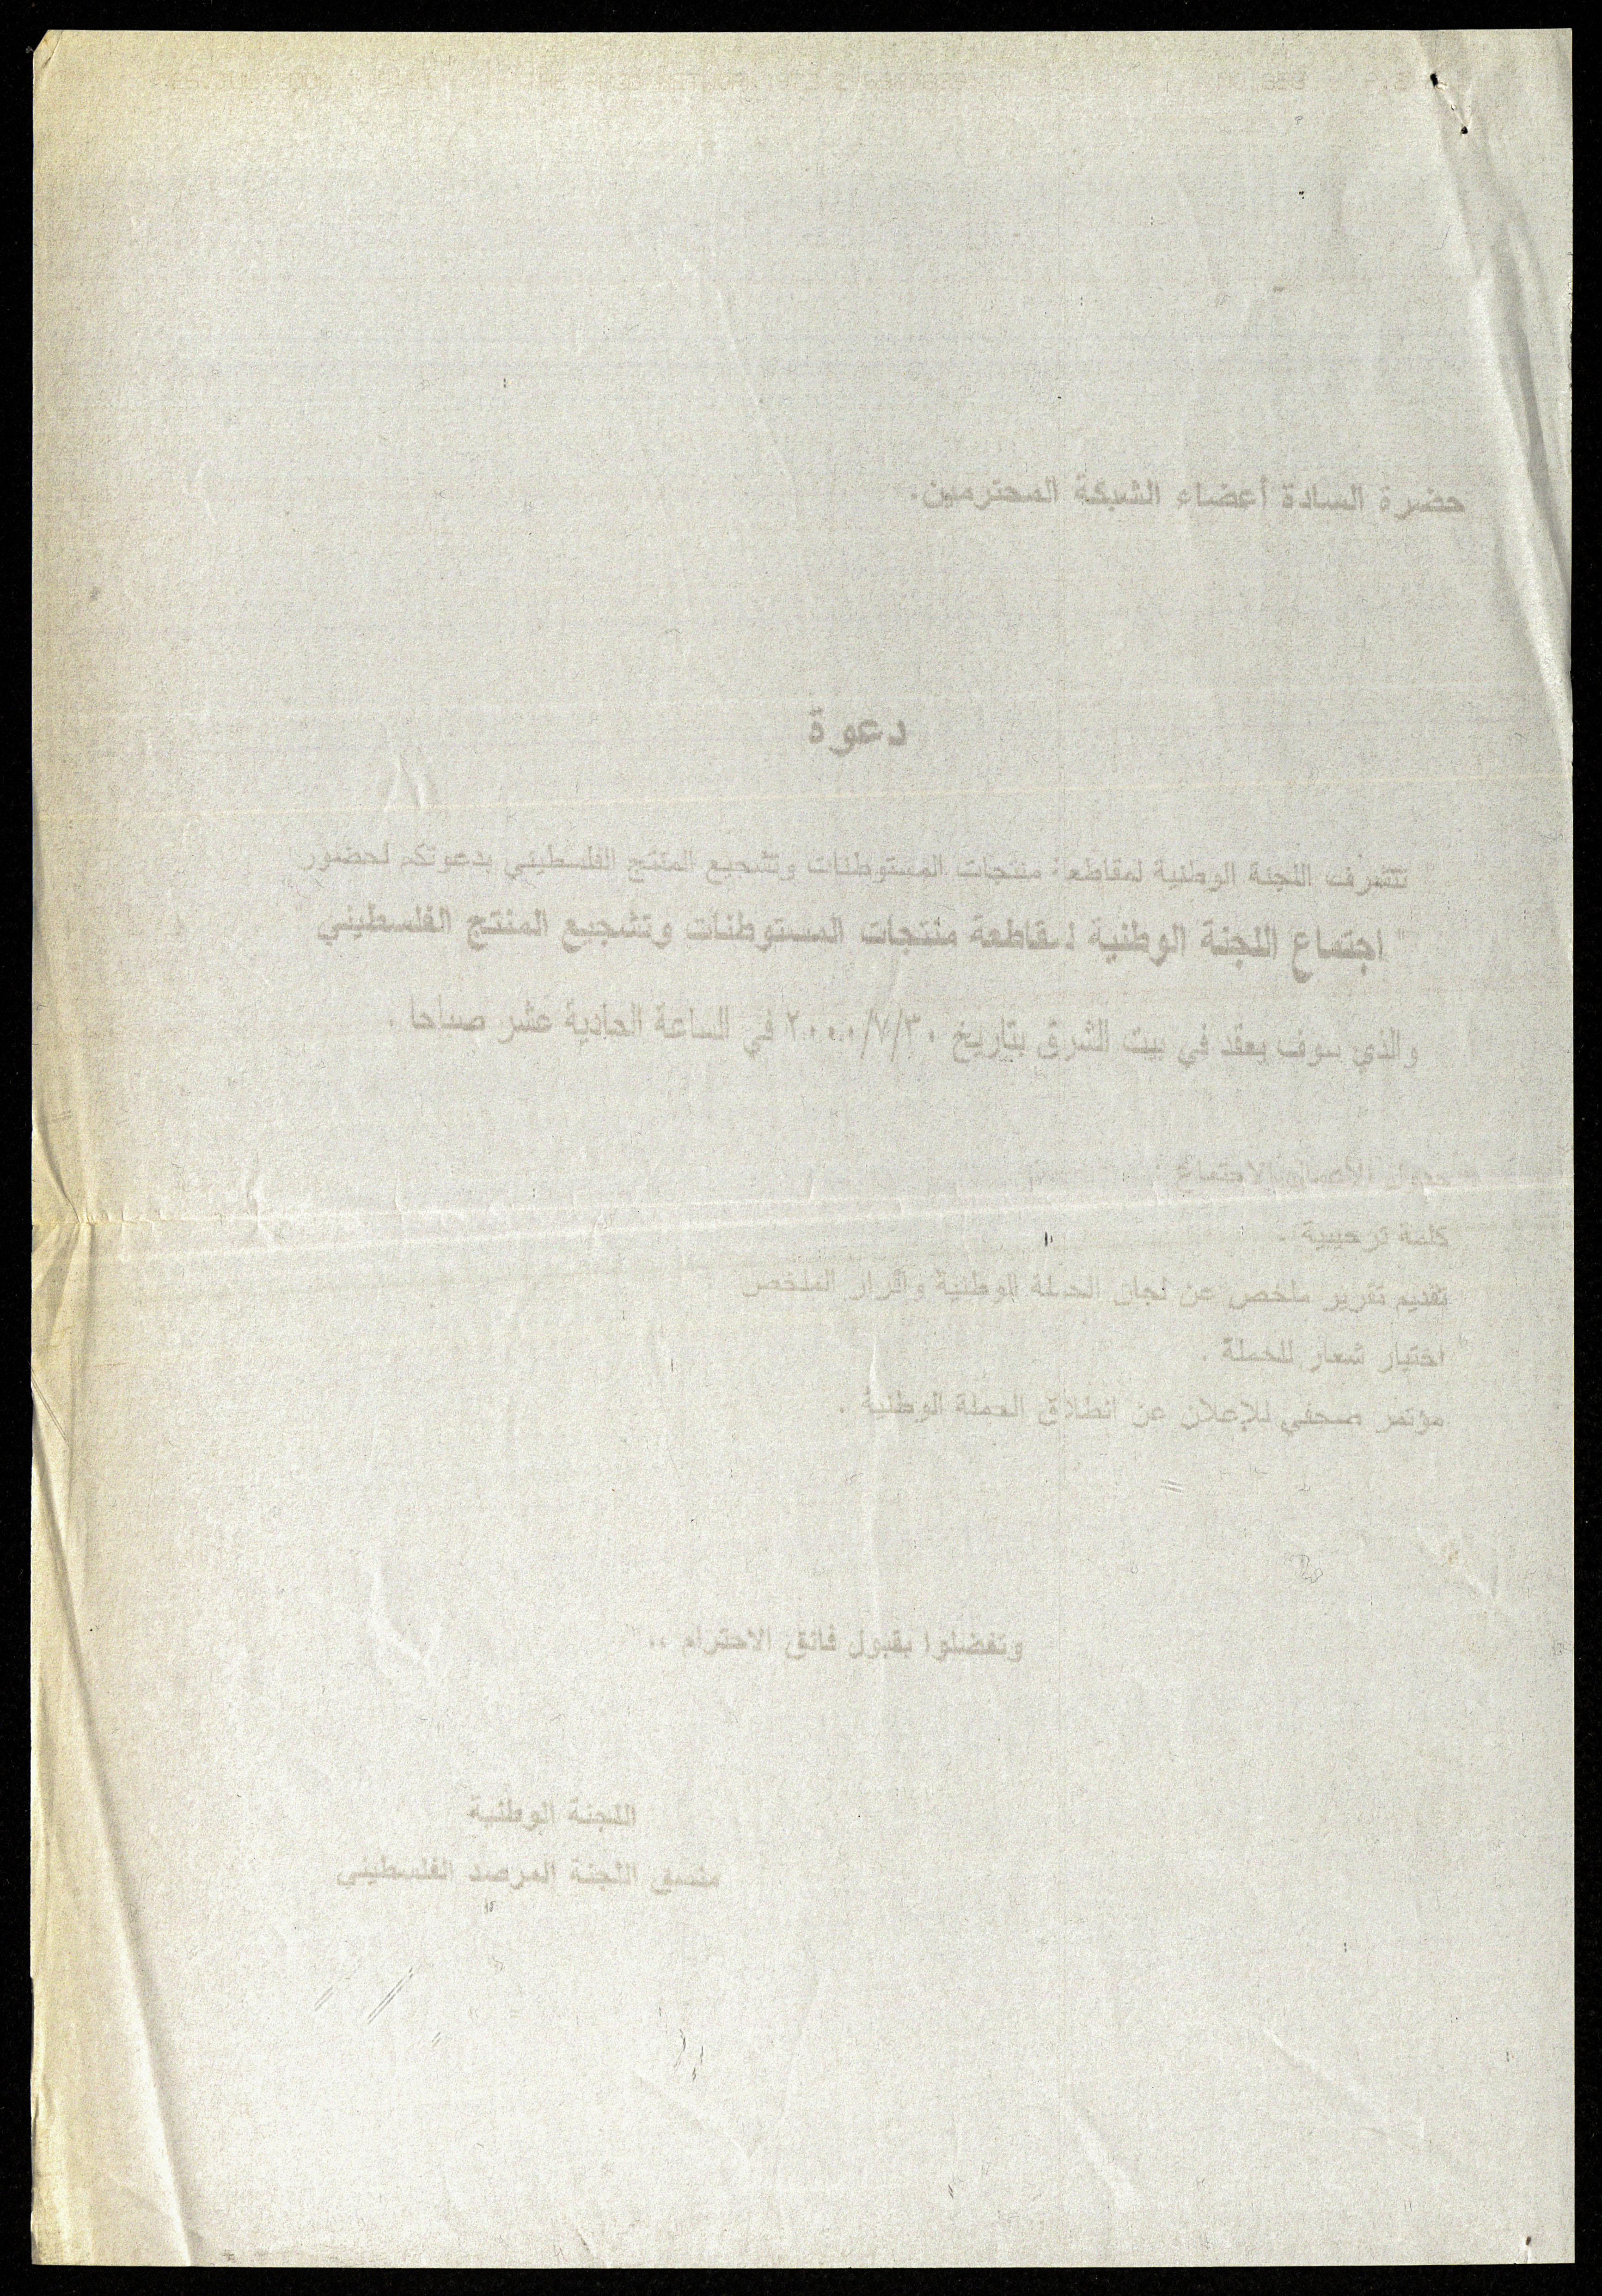 حضرة السادة أعضاء الشبكة المحترمين.
دعوة
تتشرف اللجنة الوطنية لمقاطعة منتجات المستوطنات وتشجيع المنتج الفلسطيني بدعوتكم لحضور
" اجتماع اللجنة الوطنية لمقاطعة منتجات المستوطنات وتشجيع المنتج الفلسطيني "
والذي سوف يعقد في بيت الشرق بتاريخ ٢٠٠٠/٧/٣٠ في الساعة الحادية عشر صباحا .
جدول الأعمال الاجتماع
كلمة ترحيبية .
تقديم تقرير ملخص عن لجان الحملة الوطنية وأقرار الملخص
اختيار شعار للحملة .
مؤتمر صحفي للإعلان عن انطلاق الحملة الوطنية .
وتفضلوا بقبول فائق الاحترام ،،
اللجنة الوطنية
منسق اللجنة المرصد الفلسطيني